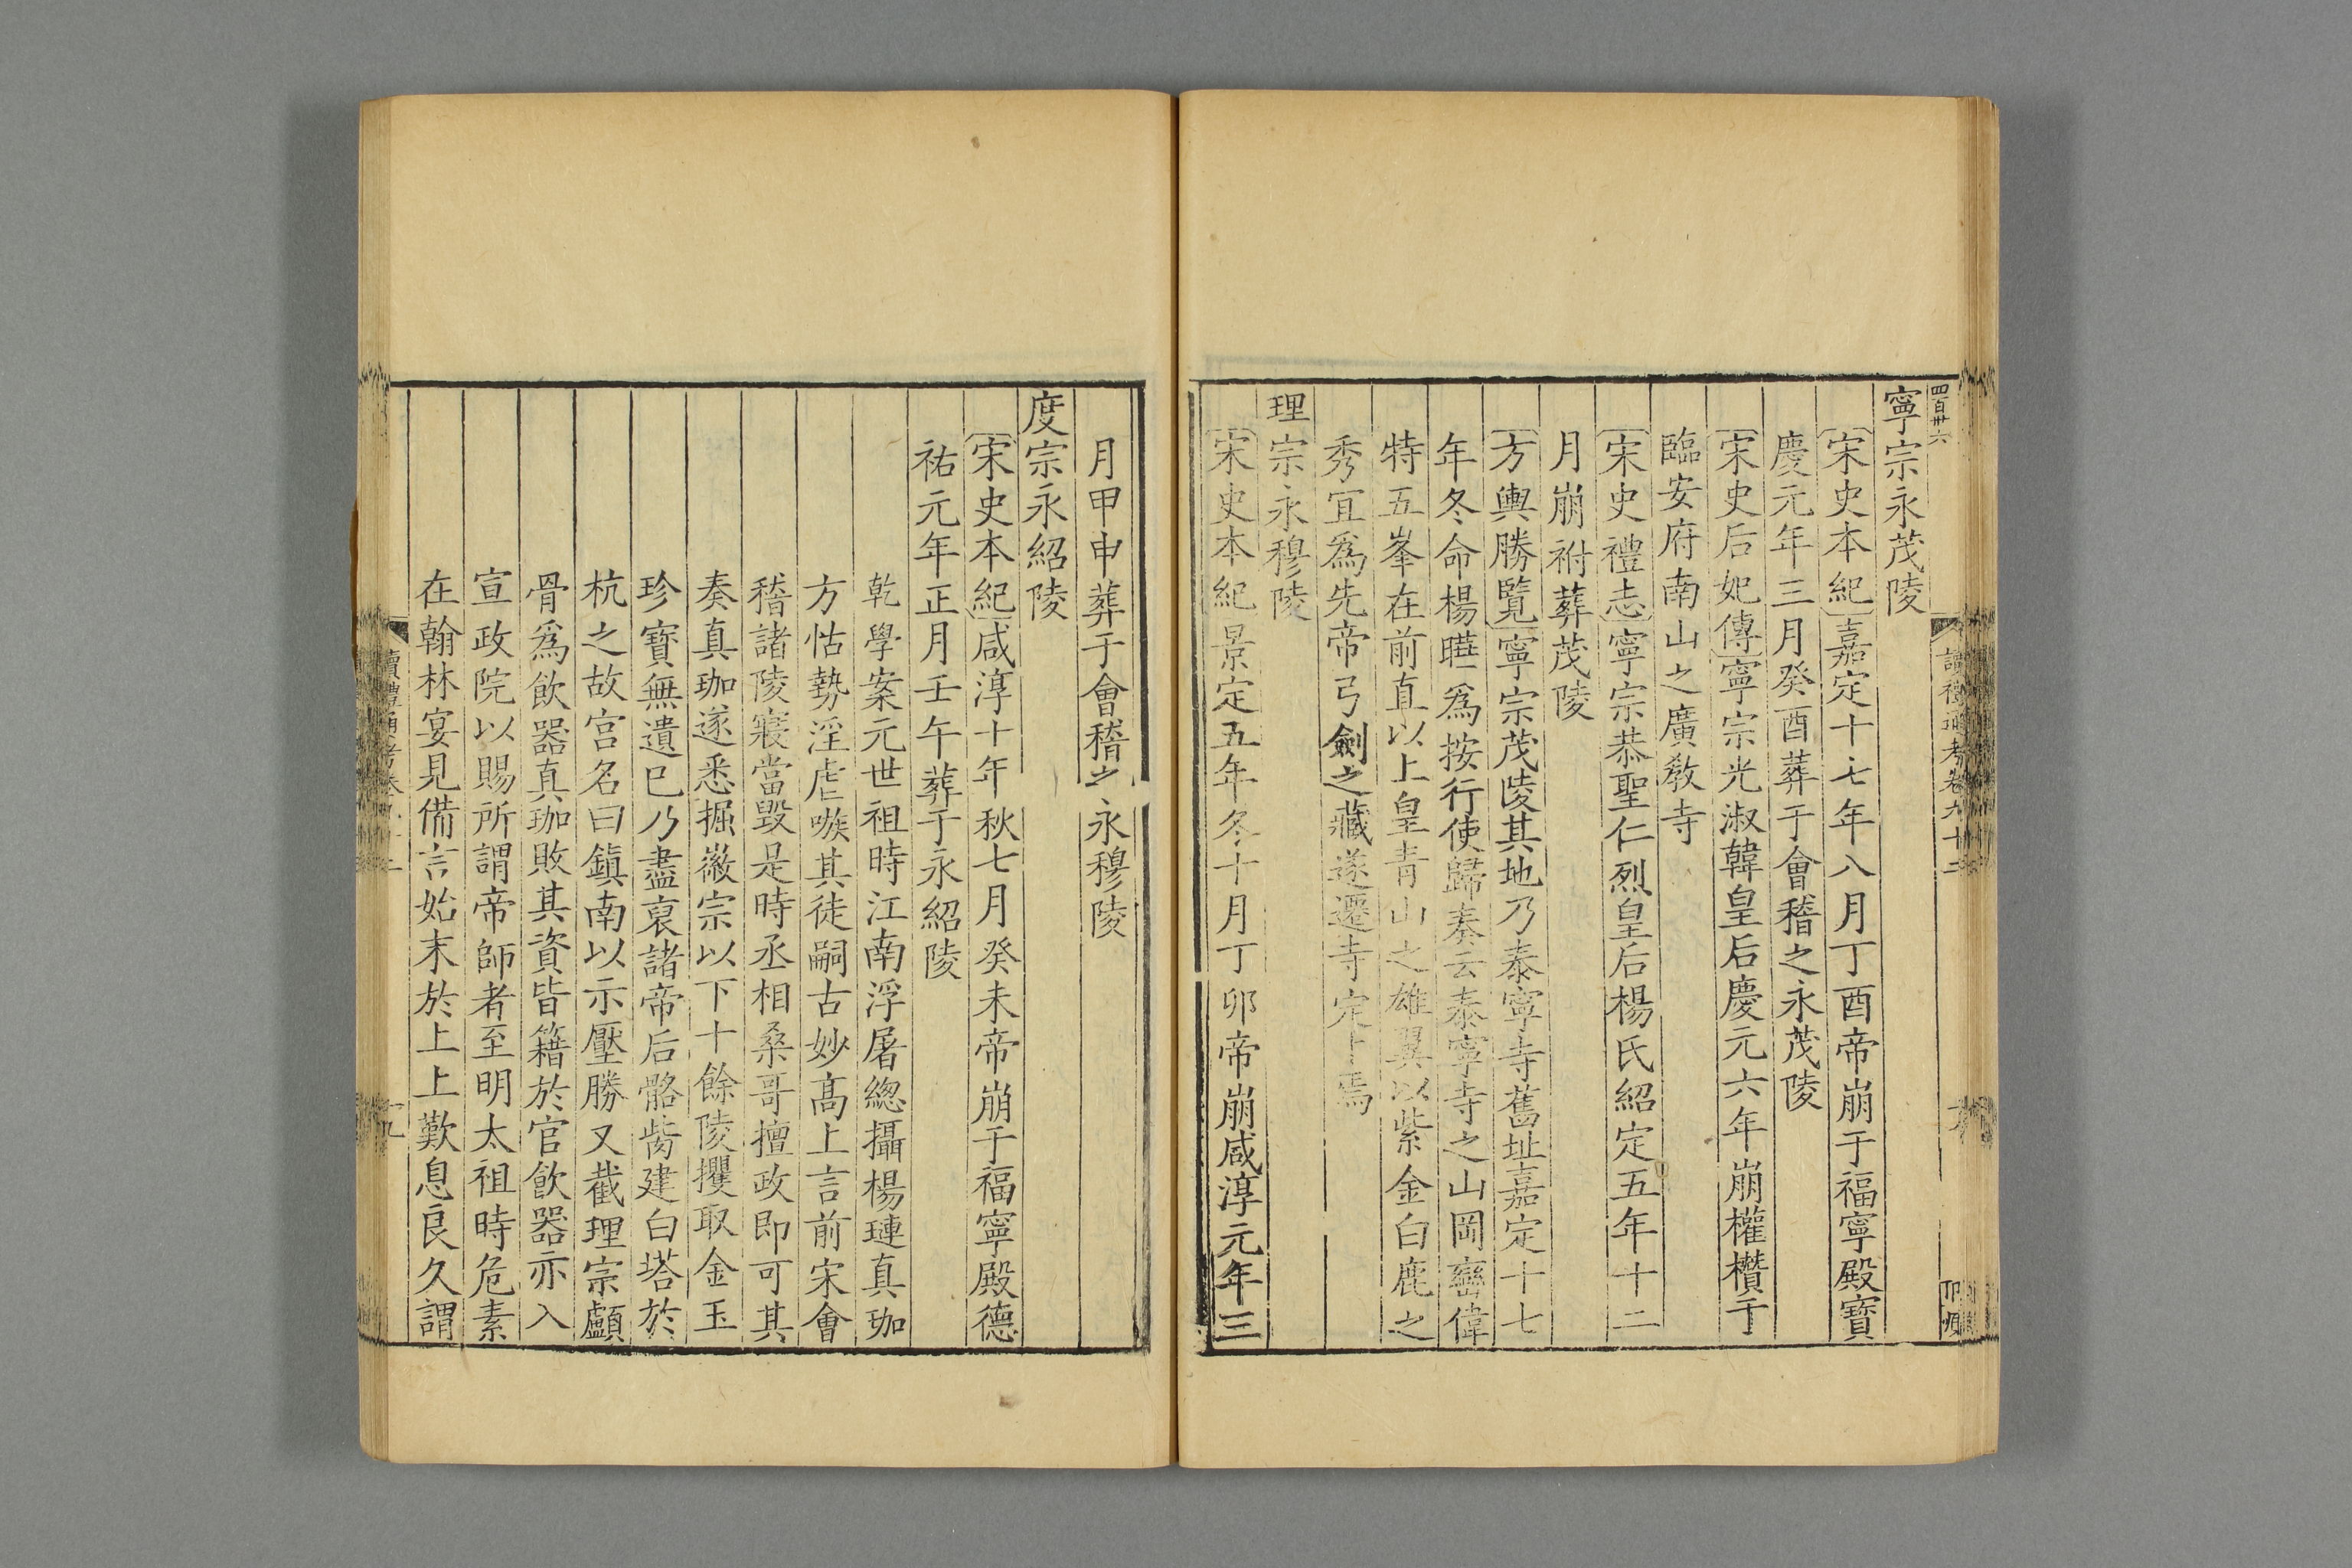 四百卅六
寧宗永茂陵
宋史本紀嘉定十七年八月丁酉帝崩于福寧殿寶
慶元年三月癸酉葬于會稽之永茂陵
宋史后妃傳寧宗光淑韓皇后慶元六年崩權欑于
臨安府南山之廣教寺
宋史禮志寧宗恭聖仁烈皇后楊氏紹定五年十二
月崩祔葬茂陵
方輿勝覽寧宗茂陵其地乃泰寧寺舊址嘉定十七
年冬命楊㬢爲按行使歸奏云泰寧寺之山岡巒偉
特五峯在前直以上皇青山之雄翼以紫金白鹿之
秀宜爲先帝弓劍之藏遂遷寺定卜焉
理宗永穆陵
宋史本紀景定五年冬十月丁卯帝崩咸淳元年三
月甲申葬于會稽之永穆陵
度宗永紹陵
宋史本紀咸淳十年秋七月癸未帝崩于福寧殿德
祐元年正月壬午葬于永紹陵
乾學案元世祖時江南浮屠總攝楊璉真珈
方怙勢淫虐嗾其徒嗣古妙高上言前宋會
稽諸陵寢當毀是時丞相桑哥擅政即可其
奏真珈遂悉掘徽宗以下十餘陵攫取金玉
珍寶無遺已乃盡裒諸帝后骼胔建白塔於
杭之故宫名曰鎮南以示壓勝又截理宗顱
骨爲飲器真珈敗其資皆籍於官飲器亦入
宣政院以賜所謂帝師者至明太祖時危素
在翰林宴見備言始末於上上歎息良久謂
讀禮通考卷九十二